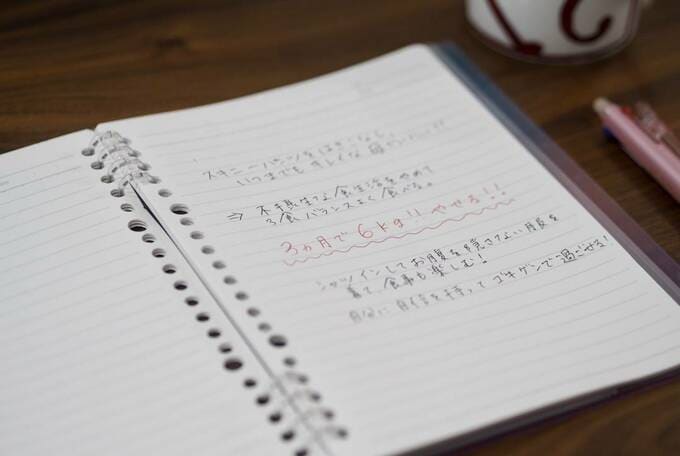 スキニーパンツをはきこなし
いつまでもキレイな母でいたい!!
⇒ 不規則な食生活をやめて
3食バランスよく食べる。
3ヵ月で6kg!! やせる!!
シャツインしてお腹を隠さない服装を
着て、食事も楽しむ!
自分に自信を持ってゴキゲンで過ごせる!